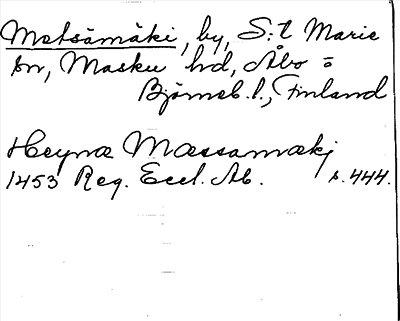 Metsämäki, by, S:t Marie
sn, Masku hd, Åbo o
Björneb. l., Finland
Heynæ Mæssamækj
1453 Reg. Eccl. Ab. s. 444.